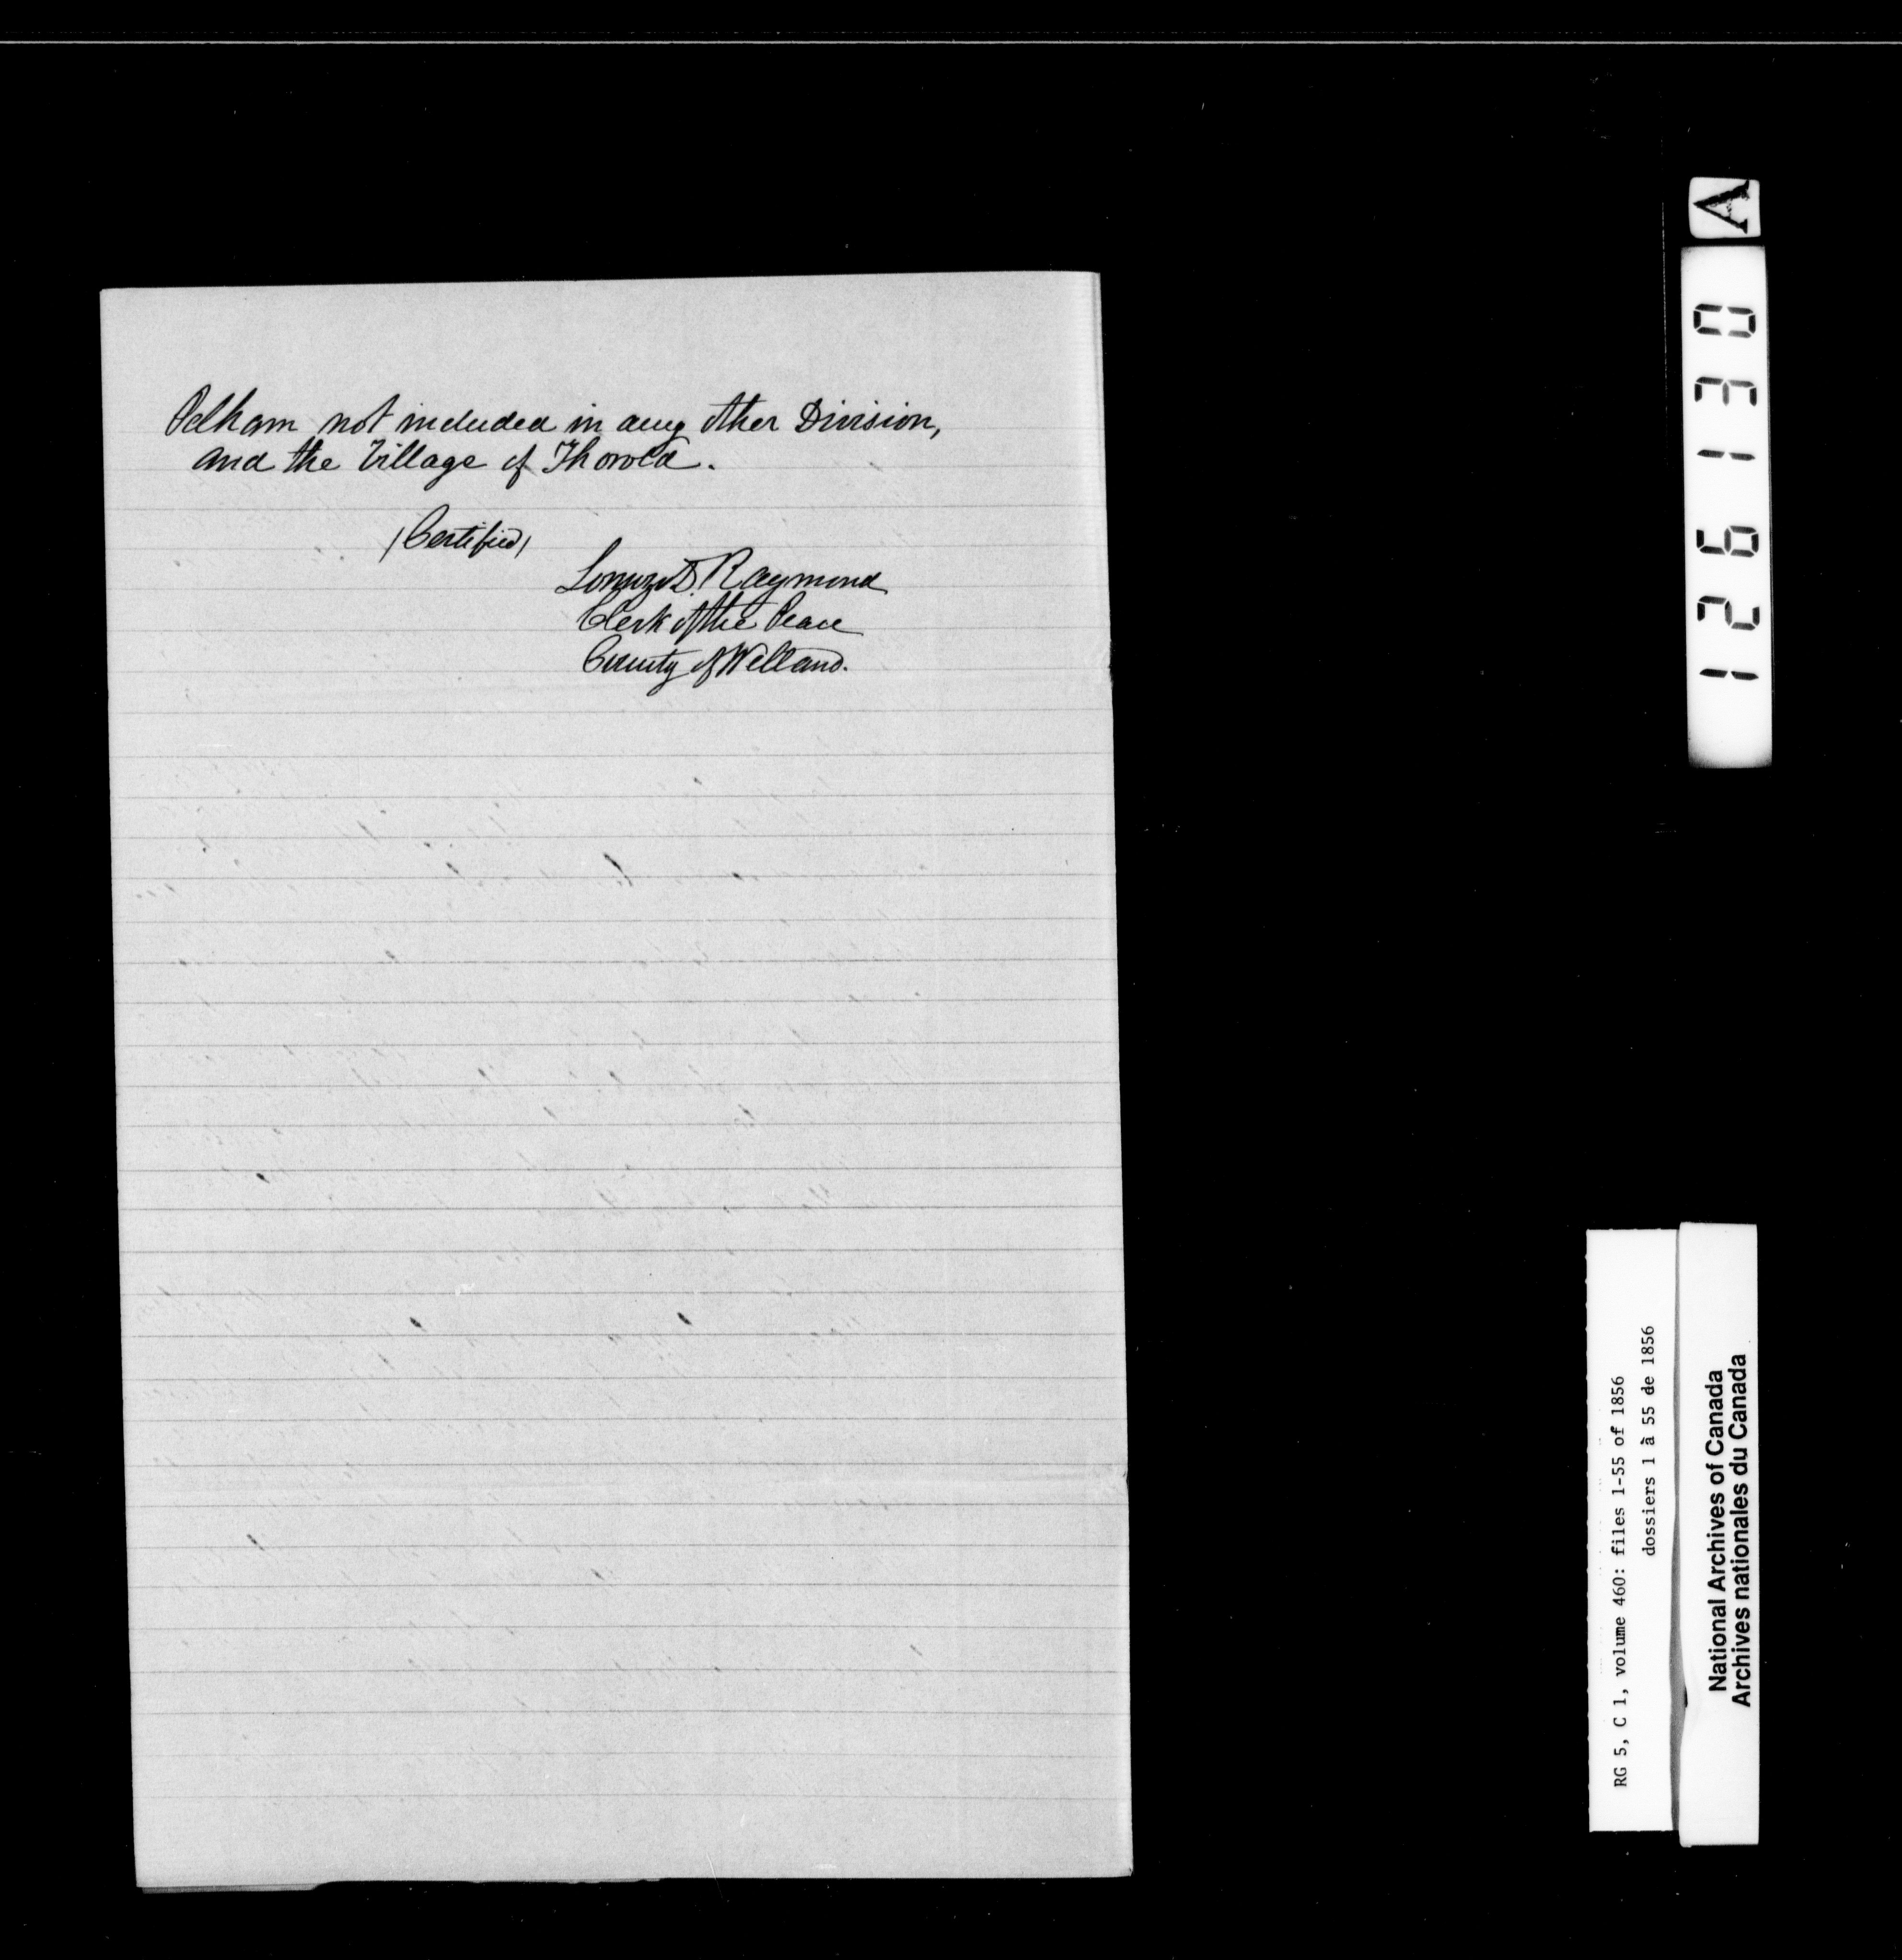 Pelham not included in any other Division,
and the Village of Thorold.
/Certified/
Lorenzo D. Raymond
Clerk of the Peace
County of Welland.
A
126130
RG 5, C 1, volume 460: files 1-55 of 1856
dossiers 1 à 55 de 1856
National Archives of Canada
Archives nationales du Canada